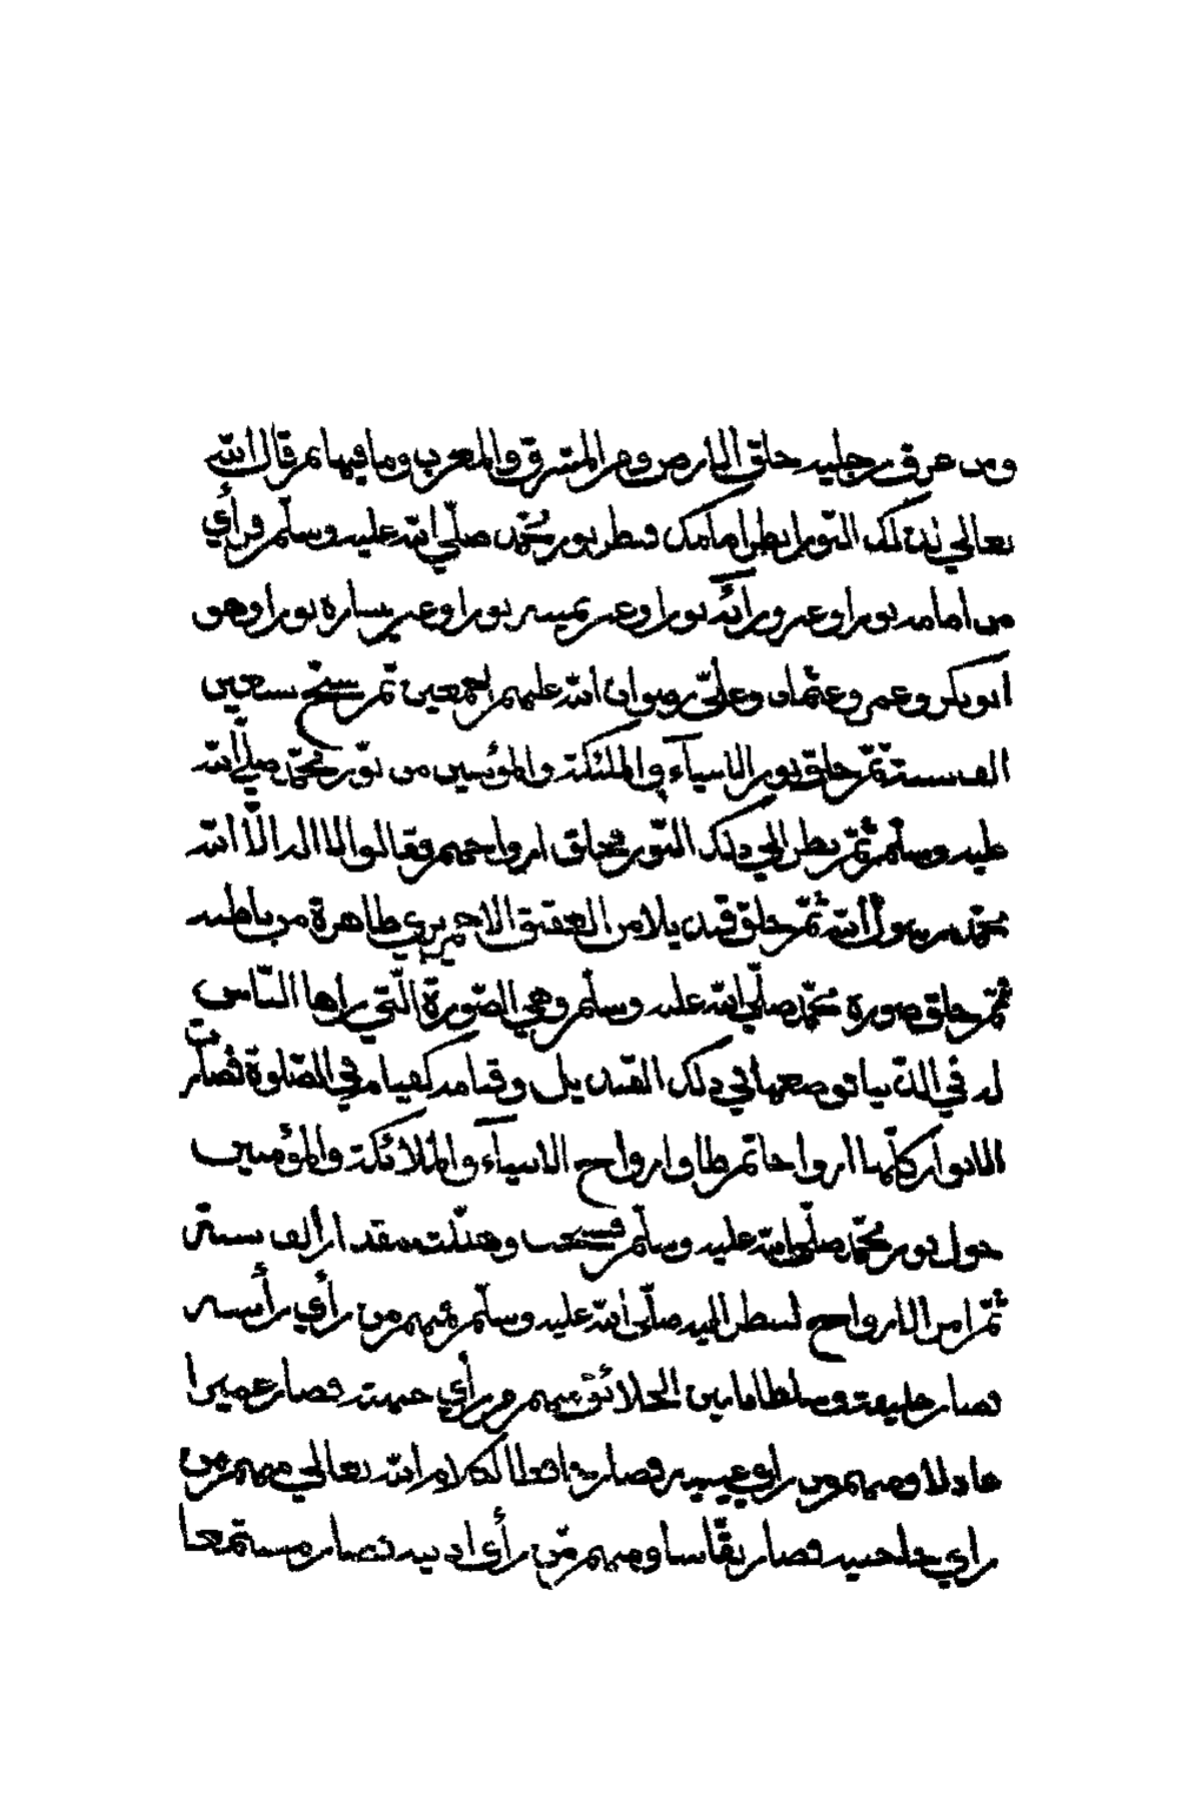 ومن عرق رجليه خلق الارض من المشرق والمغرب وما فيها ثم قال الله
تعالي لذلك النور انظر امامك فنظر نور محمد صلّي الله عليه وسلّم فرأي
من أمامه نورا وعن ورائه نورا وعن يمينه نورا وعن يساره نورا وهو
ابو بكر وعمر وعثمان وعليّ رضوان الله عليهم اجمعين ثم سبّح سبعين
الف سنة ثمّ خلق نور الانبيآء والملئكة والمؤمنين من نور محمّد صلّي الله
عليه وسلّم ثمّ نظر الي ذلك النّور فخلق ارواحهم فقالوا لا اله الّا الله
محمّد رسول الله ثمّ خلق قنديلا من العقيق الاحمر يري ظاهرة من باطنه
ثمّ خلق صورة محمّد صلّي الله عليه وسلّم وهي الصّورة الّتي رأها النّاس
له في الدّنيا ووضعها في ذلك القنديل وقيامه كقيامه في الصّلوة فصارت
الانوار كلّها ارواحا ثم طاف ارواح الانبيآء والملائكة والمؤمنين
حول نور محمّد صلّي الله عليه وسلّم فسبّحت وهلّلت مقدار ألف سنة
ثمّ امر الارواح لينظر اليه صلّي الله عليه وسلّم فمنهم من رأي رأسه
فصار خليفة وسلطانا بين الخلائق ومنهم من رأي جبهته فصار عميرا
عادلا ومنهم من رأي عينيه فصار حافظا لكلام الله تعالي ومنهم من
رأي حاجبيه فصار نقّاشا ومنهم من رأي اذنيه فصار مستمعا